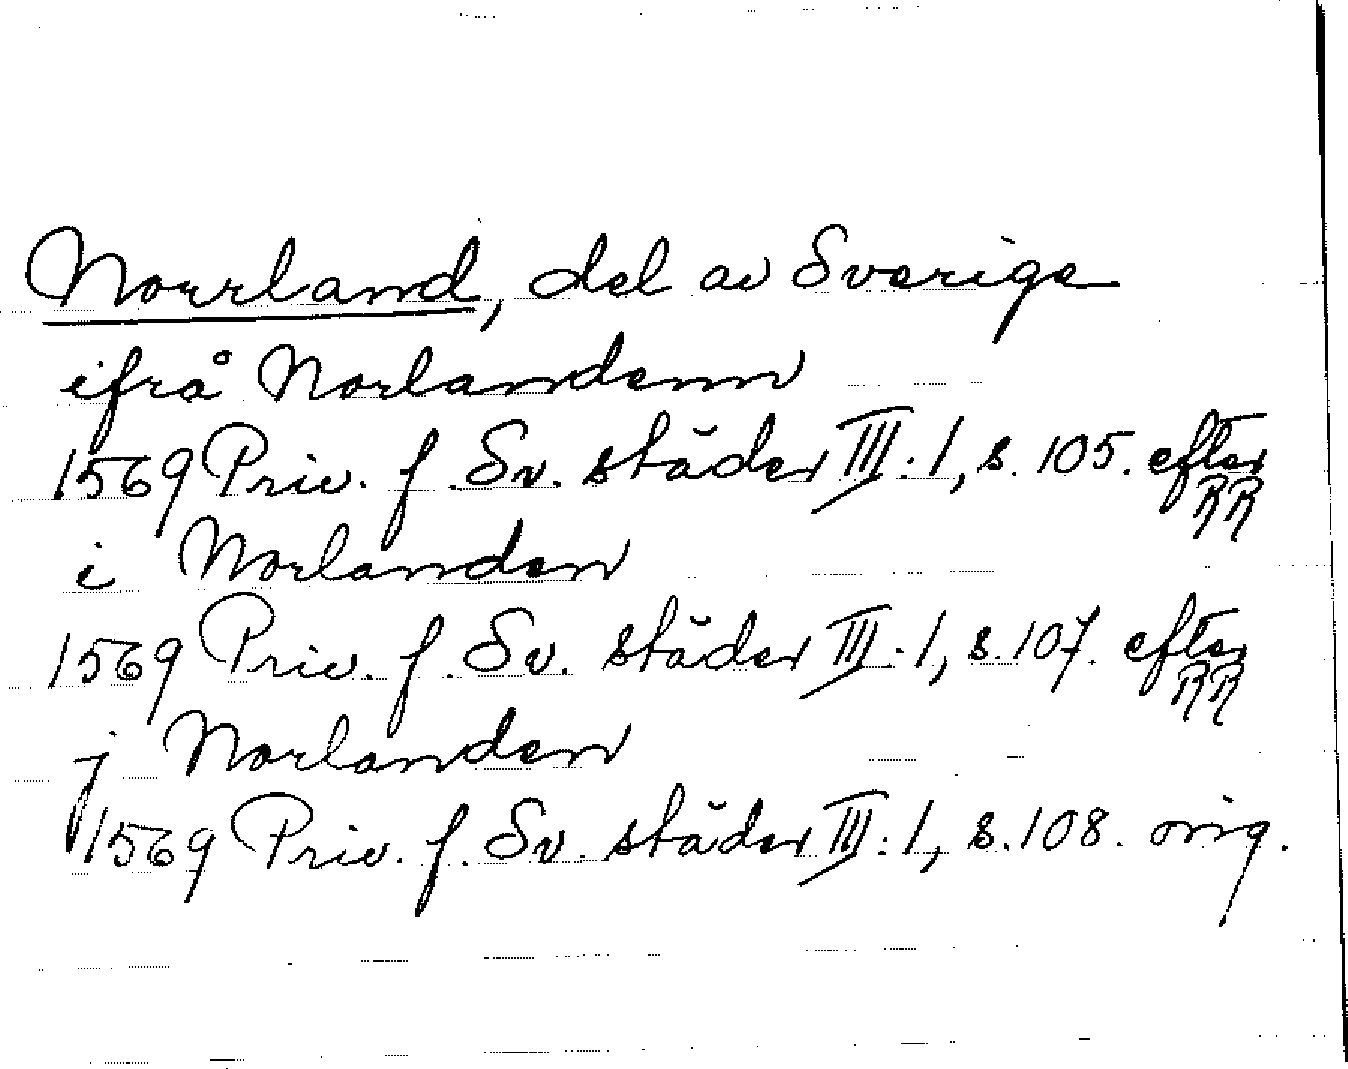 Norrland, del av Sverige
ifrå Norlandenn
1569 Priv. f. Sv. städer III:1, s. 105. efter RR
i Norlanden
1569 Priv. f. Sv. städer III:1, s. 107. efter RR
j Norlanden
1569 Priv. f. Sv. städer III:1, s. 108. orig.